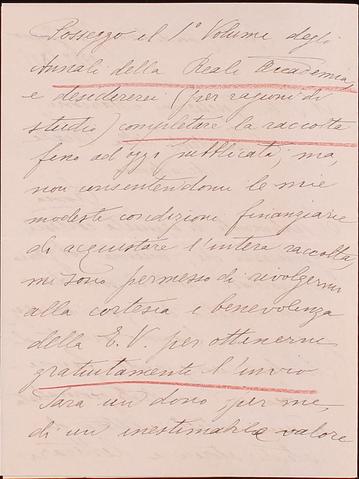 Posseggo il 1° Volume degli
Annali della Reale Accademia,
e desidererei (per ragioni di
studio) completare la raccolta
fino ad oggi pubblicata, ma,
non consentendomi le mie
modeste condizioni finanziarie
di acquistare l'intera raccolta,
mi sono permesso di rivolgermi
alla cortesia e benevolenza
della E. V. per ottenerne
gratuitamente l'invio
Sarà un dono, per me,
di un inestimabile valore